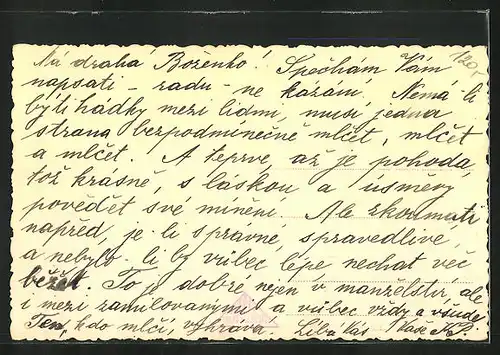 Má drahá Boženko! Spěchám Vám
napsati - radu - ne kázání. Nemá-li
býti hádky mezi lidmi, musí jedna
strana bezpodmínečně mlčet, mlčet
a mlčet. A teprve, až je pohoda,
tož krásně, s láskou a úsměvy
povědět své mínění. Ale zkoumati
napřed, je-li správné, spravedlivé,
a nebylo-li by vůbec lépe nechat věc
běžet. To je dobré nejen v manželství, ale
i mezi zamilovanými a vůbec vždy a všude.
Ten, kdo mlčí, vyhrává. Líbá Vás Vaše